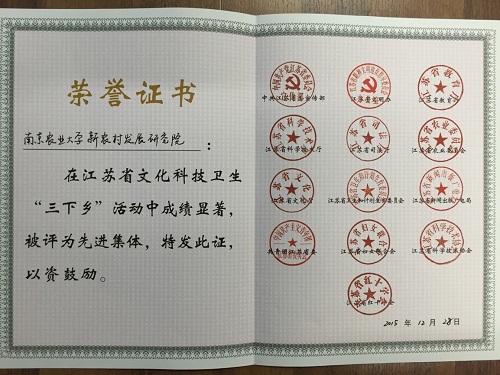 荣誉证书
南京农业大学新农村发展研究院：
在江苏省文化科技卫生
“三下乡”活动中成绩显著，
被评为先进集体，特发此证，
以资鼓励。
中共江苏省委宣传部
江苏省文明办
江苏省教育厅
江苏省科学技术厅
江苏省司法厅
江苏省农业委员会
江苏省文化厅
江苏省卫生和计划生育委员会
江苏省新闻出版广电局
共青团江苏省委
江苏省妇女联合会
江苏省科学技术协会
江苏省红十字会
2015 年 12 月 28 日